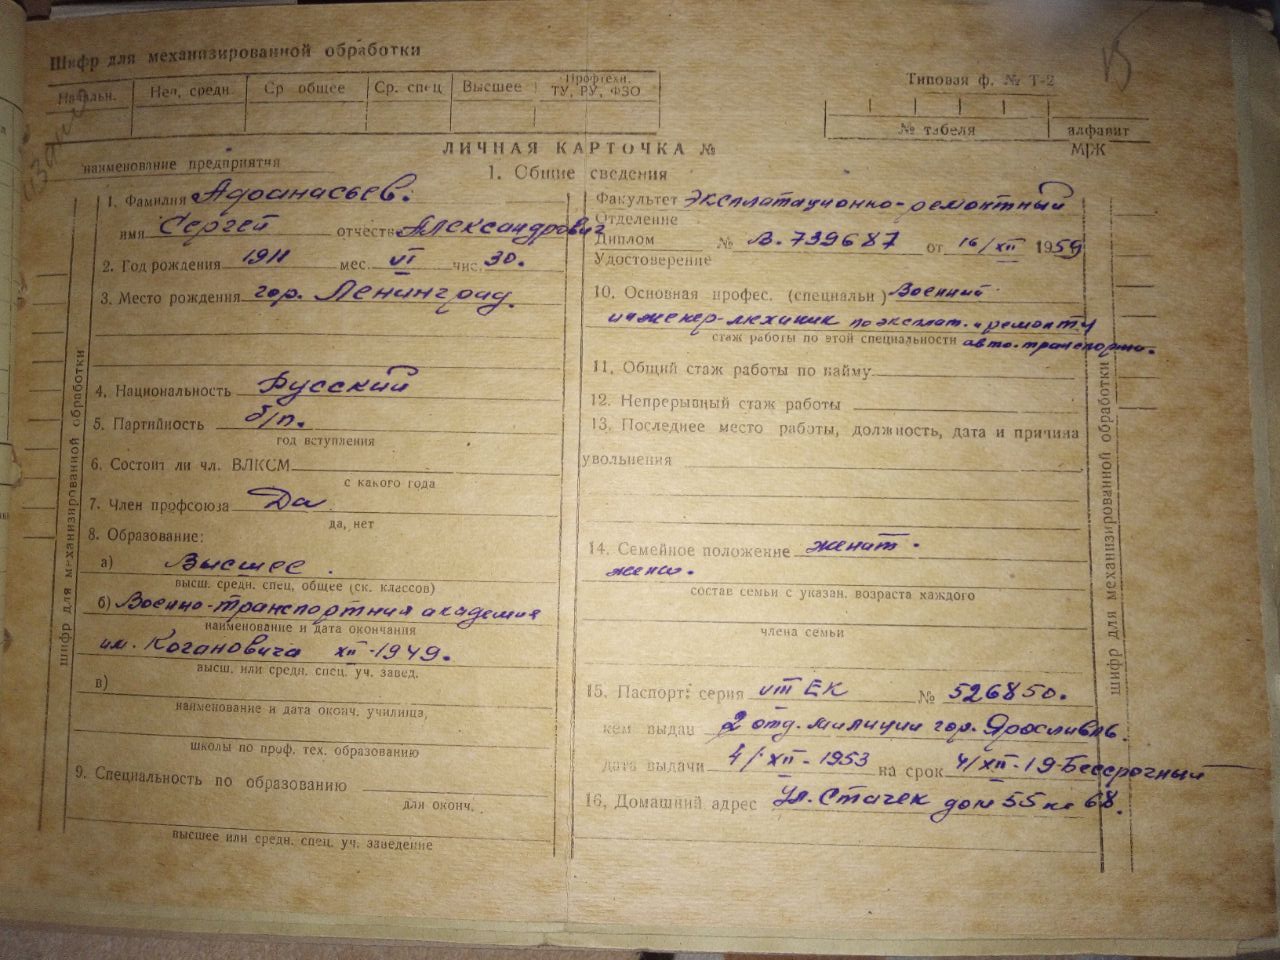 Шифр для механизированной обработки
Начальн. Неп. средн. Ср общее Ср. спец Высшее Профтехн. ТУ, РУ, ФЗО
Типовая ф. № Т-2
№ табеля алфавит
М|Ж
ЛИЧНАЯ КАРТОЧКА №
наименование предприятия
1. Общие сведения
1. Фамилия Афанасьев.
имя Сергей отчество Александрович
2. Год рождения 1911 мес. VI чис. 30.
3. Место рождения гор. Ленинград.
4. Национальность Русский
5. Партийность б/п.
год вступления
6. Состоит ли чл. ВЛКСМ
с какого года
7. Член профсоюза Да
да, нет
8. Образование:
а) Высшее.
высш. средн. спец, общее (ск. классов)
б) Военно-транспортная академия
наименование и дата окончания
им. Когановича XII-1949.
высш. или средн. спец. уч. завед.
в)
наименование и дата оконч. училища,
школы по проф. тех. образованию
9. Специальность по образованию
для оконч.
высшее или средн. спец. уч. заведение
Факультет Эксплатационно-ремонтный
Отделение
Диплом № В. 739687 от 16/XII 1959
Удостоверение
10. Основная профес. (специальн) Военный
инженер-механик по эксплат. и ремонту
стаж работы по этой специальности авто.транспорта.
11. Общий стаж работы по найму
12. Непрерывный стаж работы
13. Последнее место работы, должность, дата и причина
увольнения
14. Семейное положение женат.
жена.
состав семьи с указан. возраста каждого
члена семьи
15. Паспорт: серия VIII ЕК № 526850.
кем выдан 2 отд. милиции гор. Ярославль.
дата выдачи 4/XII-1953 на срок 4/XII-19-Бессрочный
16. Домашний адрес Ул. Стачек дом 55 кв 68.
шифр для механизированной обработки
шифр для механизированной обработки